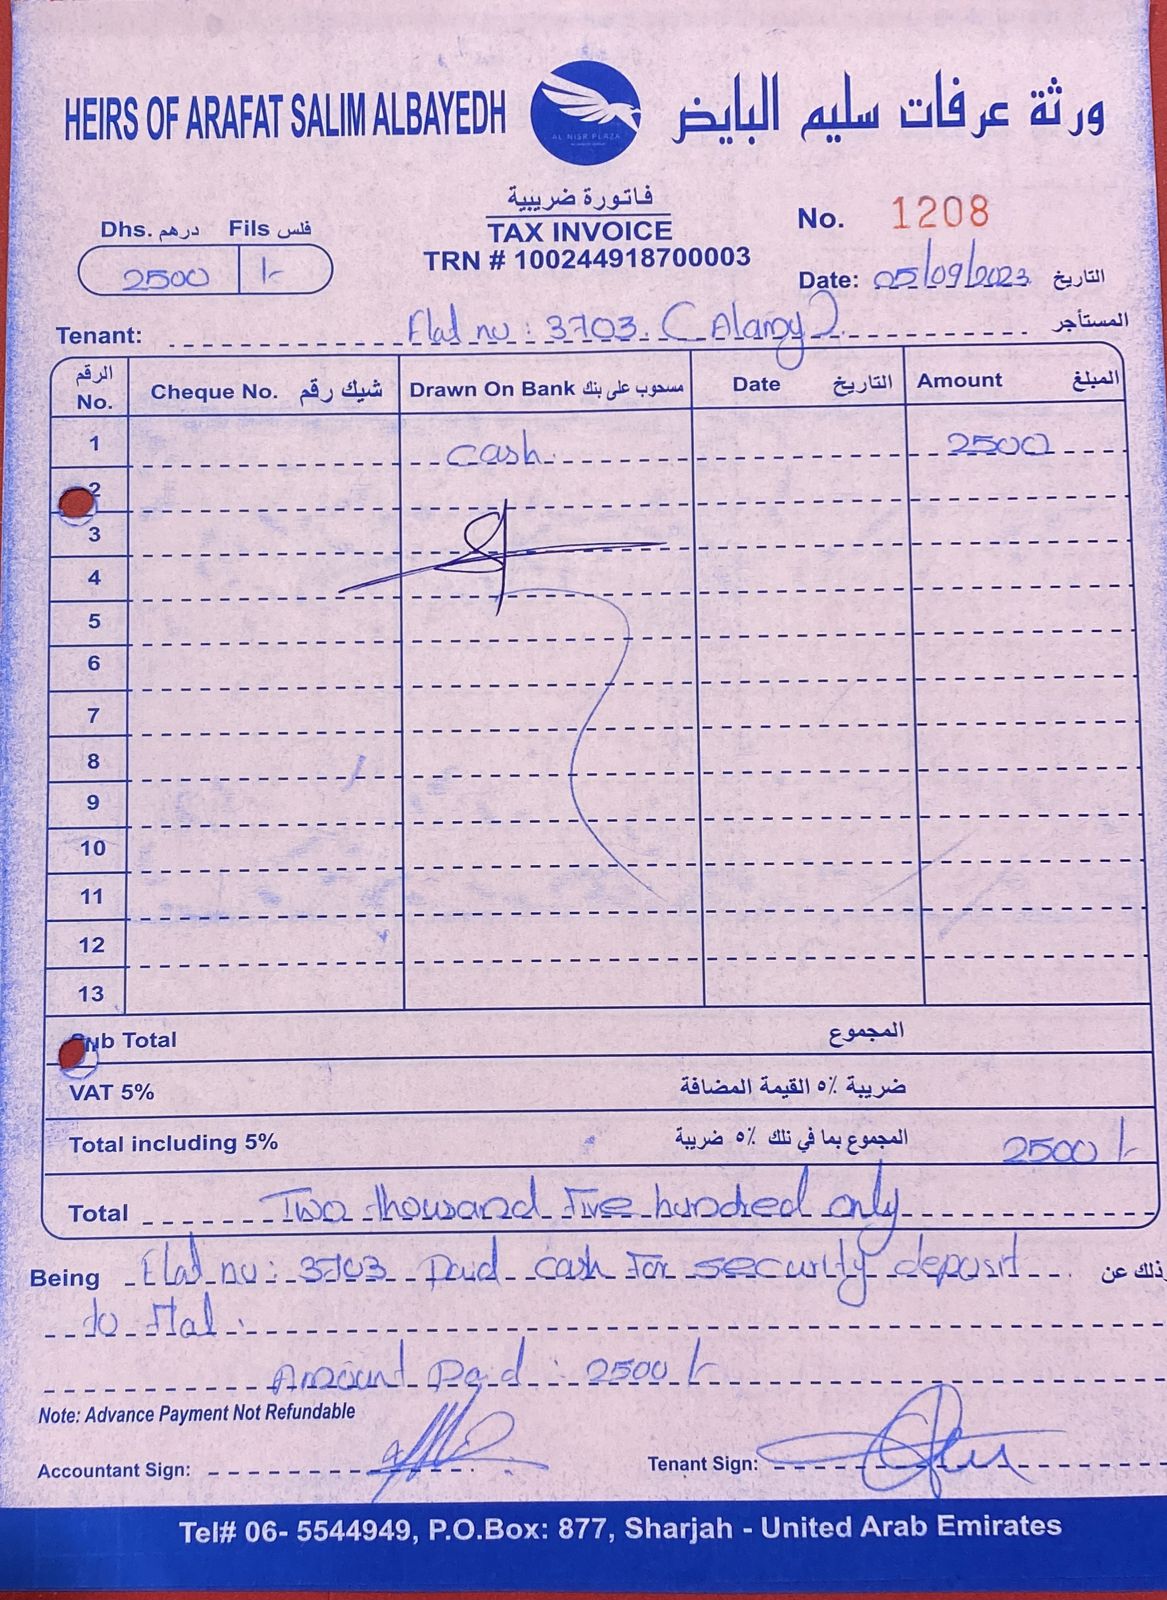 HEIRS OF ARAFAT SALIM ALBAYEDH
ورثة عرفات سليم البايض
AL NISR PLAZA
فاتورة ضريبية
TAX INVOICE
TRN # 100244918700003
Dhs. درهم Fils فلس
2500 /-
No. 1208
Date: 05/09/2023 التاريخ
Tenant: Flat no : 3703. ( Alamgy ) المستأجر
الرقم No. Cheque No. شيك رقم Drawn On Bank مسحوب على بنك Date التاريخ Amount المبلغ
1 cash 2500
2
3
4
5
6
7
8
9
10
11
12
13
Sub Total المجموع
VAT 5% ضريبة ٥٪ القيمة المضافة
Total including 5% المجموع بما في تلك ٥٪ ضريبة 2500 /-
Total Two thousand five hundred only
Being Flat no : 3703 paid cash for security deposit وذلك عن
to
Amount paid : 2500 /-
Note: Advance Payment Not Refundable
Accountant Sign:
Tenant Sign:
Tel# 06- 5544949, P.O.Box: 877, Sharjah - United Arab Emirates